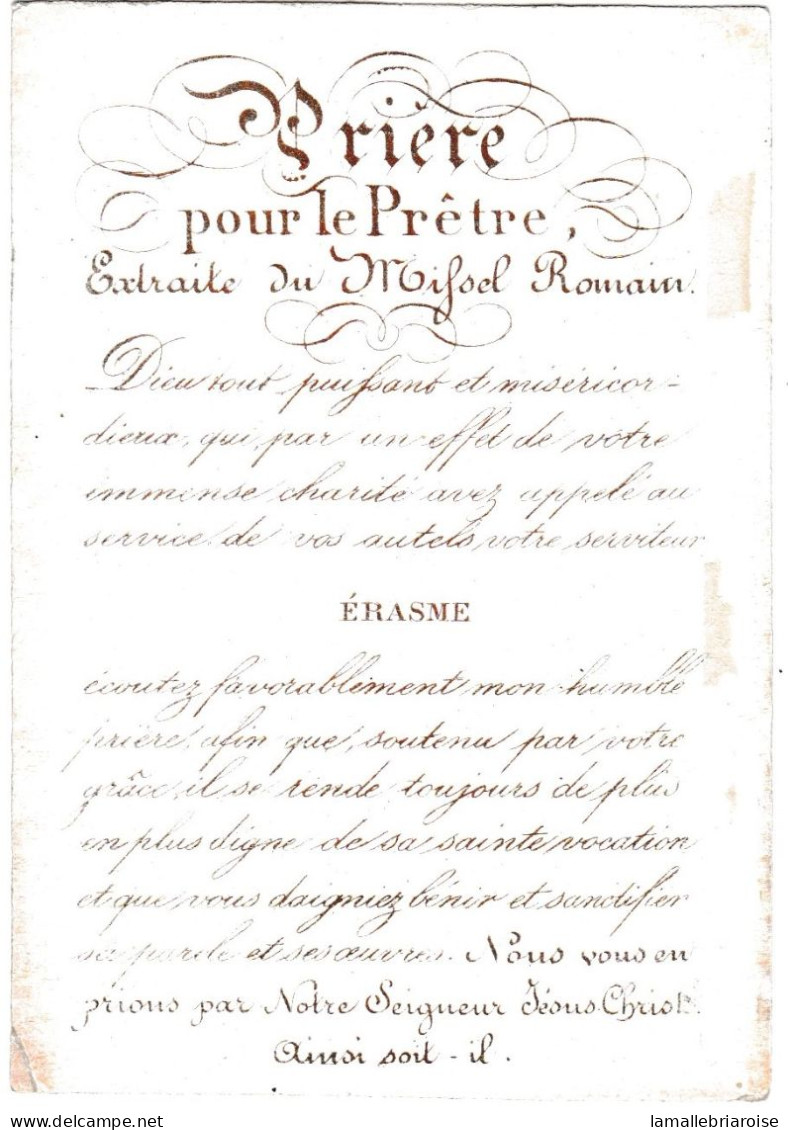 Prière
pour le Prêtre,
Extraite du Miſsel Romain.
Dieu tout puiſsant et miséricor-
dieux, qui par un effet de votre
immense charité avez appelé au
service de vos autels votre serviteur
ÉRASME
écoutez favorablement mon humble
prière, afin que, soutenu par votre
grâce, il se rende toujours de plus
en plus digne de sa sainte vocation
et que vous daigniez bénir et sanctifier
sa parole et ses œuvres. Nous vous en
prions par Notre Seigneur Jésus-Christ.
Ainsi soit-il.
www.delcampe.net
lamallebriaroise